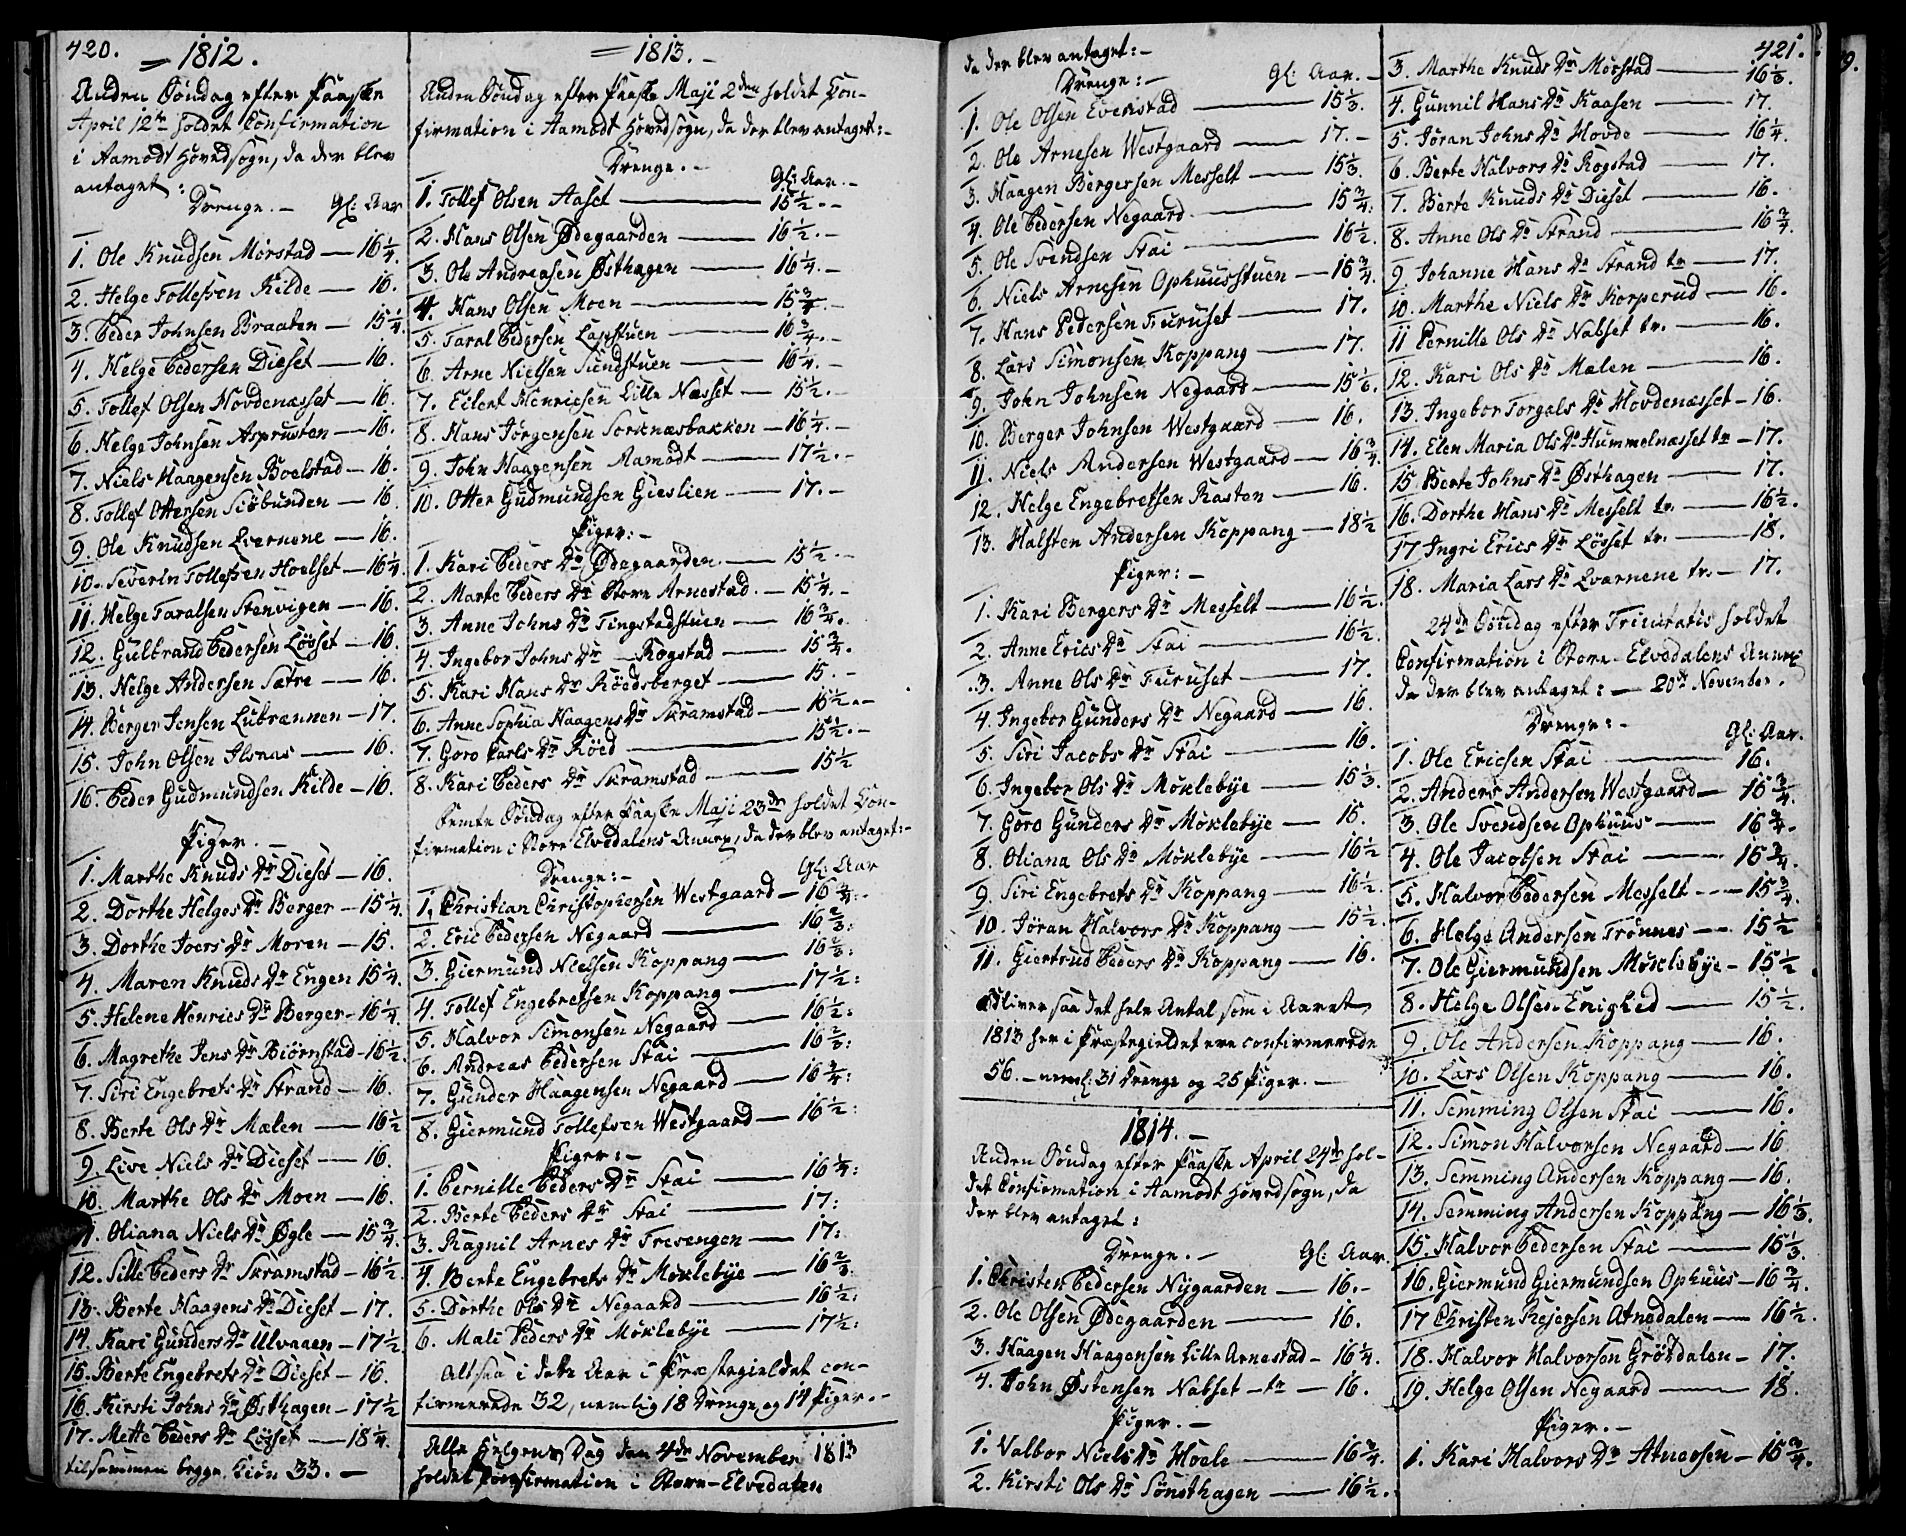 420.
= 1812.
Anden Söndag efter Paaske
April 12te holdet Confirmation
i Aamodt Hovedsogn, da der blev
antaget:
Drenge. — Gl: Aar
1. Ole Knudsen Morstad — 16 1/4.
2. Helge Tollefsen Kilde — 16.
3. Peder Johnsen Braaten — 15 1/4.
4. Helge Pedersen Dieset — 16.
5. Tollef Olsen Hovdenæsset — 16.
6. Helge Johnsen Asprusten — 16.
7. Niels Haagensen Boelstad — 16.
8. Tollef Ottersen Siöbunden — 16.
9. Ole Knudsen Qvernene — 16.
10. Severin Tollefsen Hoelset — 16 1/4.
11. Helge Taralsen Stenvigen — 16.
12. Gulbrand Pedersen Löset — 16.
13. Helge Andersen Sætre — 16.
14. Berger Jensen Lubrænnen — 17.
15. John Olsen Ilsnas — 16.
16. Peder Gudmundsen Kilde — 16.
Piger. —
1. Marthe Knuds Dr Dieset — 16.
2. Dorthe Helges Dr Berger — 15 1/4.
3. Dorthe Joers Dr Moren — 15.
4. Maren Knuds Dr Engen 15 1/4.
5. Helene Henrics Dr Berger — 16 1/4.
6. Magrethe Jens Dr Biörnstad — 16 1/2.
7. Siri Engebrets Dr Strand — 16.
8. Berte Ols Dr Mælen — 16 1/2
9. Live Niels Dr Dieset — 16.
10. Marthe Ols Dr Moen — 16.
11. Oliana Niels Dr Øgle — 15 3/4.
12. Sille Peders Dr Skramstad — 16 1/2
13. Berte Haagens Dr Dieset — 17.
14. Kari Gunders Dr Ulvaaen — 17 1/2
15. Berte Engebrets Dr Dieset — 16.
16. Kirsti Johns Dr Østhagen — 17 1/2
17. Mette Peders Dr Löset — 18 1/4.
tilsammen begge Kiön 33. —
= 1813. —
Anden Söndag efter Paaske Maji 2den holdet Con-
firmation i Aamodt Hovedsogn, da der blev antaget: —
Drenge. —
Gl: Aar. —
1. Tollef Olsen Aaset — 15 1/2. —
2. Hans Olsen Ödegaarden — 16 1/2. —
3. Ole Andreasen Østhagen — 16 1/4. —
4. Hans Olsen Moen — 15 3/4. —
5. Taral Pedersen — 16 3/4. —
6. Arne Nielsen Sundstuen — 16 1/4. —
7. Eilert Henricsen Lille Næsset — 15 1/2. —
8. Hans Jörgensen Sorknæsbakken — 16 1/4. —
9. John Haagensen Aamodt — 17 1/2. —
10. Otter Gudmundsen Gieslien — 17. —
Piger: —
1. Kari Peders Dr Ødegaarden — 15 1/2. —
2. Marte Peders Dr Store Arnestad. — 15 1/4. —
3. Anne Johns Dr Tingstadstuen — 16 3/4.
4. Ingebor Johns Dr Rogstad — 15 3/4.
5. Kari Hans Dr Röedsberget — 15. —
6. Anne Sophia Haagens Dr Skramstad — 15 1/2. —
7. Goro Carls Dr Röed — 15 1/2. —
8. Kari Peders Dr Skramstad — 15 1/2
Femte Söndag efter Paaske Maji 23de holdet Con-
firmation i Store Elvedalens Annex, da der blev antaget: —
Drenge: — Gl: Aar
1. Christian Christophersen Westgaard — 16 3/4.
2. Eric Pedersen Negaard — 16 2/3:
3. Giermund Nielsen Koppang — 16 2/3:
4. Tollef Engebretsen Koppang — 17 1/2:
5. Halvor Simonsen Negaard — 16 1/2:
6. Andreas Pedersen Stai — 16 2/3:
7. Gunder Haagensen Negaard — 16 3/4:
8. Giermund Tollefsen Westgaard — 16 1/2:
Piger: —
1. Pernille Peders Dr Stai — 16 1/4:
2. Berte Peders Dr Stai — 17:
3. Ragnil Arnes Dr Tresengen — 17:
4. Berte Engebrets Dr Möklebye — 16 2/3.
5. Dorthe Ols Dr Negaard — 16 1/2:
6. Mali Peders Dr Möklebye — 17 1/2:
Altsaa i dette Aar i Præstegieldet con-
firmerede 32, nemlig 18 Drenge, og 14 Piger. —
Alle Helgens Dag den 4de November 1813
holdet Confirmation i Store-Elvedalen
da der blev antaget: —
Drenge: — Gl: Aar. —
1. Ole Olsen Evenstad — 15 1/3.
2. Ole Arnesen Westgaard — 17. —
3. Haagen Bergersen Messelt — 15 1/3.
4. Ole Pedersen Negaard — 15 3/4:
5. Ole Svendsen Stai — 16 1/2.
6. Niels Arnesen Ophuusstuen — 15 3/4.
7. Hans Pedersen Furuset — 17.
8. Lars Simonsen Koppang — 17.
9. John Johnsen Negaard — 15 1/6.
10. Berger Johnsen Westgaard — 16.
11. Niels Andersen Westgaard — 16 3/4.
12. Helge Engebretsen Rasten — 16.
13. Halsten Andersen Koppang — 18 1/2
Piger: —
1. Kari Bergers Dr Messelt — 16 1/2.
2. Anne Erics Dr Stai — 16 1/2.
3. Anne Ols Dr Furuset — 17.
4. Ingebor Gunders Dr Negaard — 16.
5. Siri Jacobs Dr Stai — 16.
6. Ingebor Ols Dr Möklebye — 15 1/3.
7. Goro Gunders Dr Möklebye — 15.
8. Oliana Ols Dr Möklebye — 16 1/2
9. Siri Engebrets Dr Koppang — 16 1/2.
10. Jöran Halvors Dr Koppang — 15 1/2.
11. Giertrud Peders Dr Koppang — 16.
bliver saa det hele Antal som i Aaret
1813 her i Præstegieldet ere confirmerede
56. — neml: 31 Drenge og 25 Piger. —
1814. —
Anden Söndag efter Paaske April 24de hol-
det Confirmation i Aamodt Hovedsogn, da
der blev antaget:
Drenge. — Gl: Aar.
1. Christen Pedersen Nygaarden — 16. —
2. Ole Olsen Ödegaarden — 16.
3. Haagen Haagensen Lille Arnestad — 16 1/4.
4. John Østensen Nabset — tr — 16.
Piger. —
1. Valbor Niels Dr Hoele — 16 3/4.
2. Kirsti Ols Dr Sönsthagen — 16 1/2.
421.
3. Marthe Knuds Dr Morstad — 16 1/3.
4. Gunnil Hans Dr Kaasen — 17.
5. Jöran Johns Dr Hovde — 16 1/4.
6. Berte Halvors Dr Rogstad — 17.
7. Berte Knuds Dr Dieset — 16.
8. Anne Ols Dr Strand — 16 3/4.
9. Johanne Hans Dr Strand tr — 17.
10. Marthe Niels Dr Korperud — 16.
11. Pernille Ols Dr Nabset tr. — 16.
12. Kari Ols Dr Mælen — 16.
13. Ingebor Torgals Dr Hovdenæsset — 16.
14. Elen Maria Ols Dr Hummelnæsset tr — 17.
15. Berte Johns Dr Østhagen — 17.
16. Dorthe Hans Dr Messelt tr. — 16 1/2.
17. Ingri Erics Dr Löset tr. — 18.
18. Maria Lars Dr Qværnene tr. — 17.
24de Söndag efter Trinitatis holdet
Confirmation i Store-Elvedalens Annex
da der blev antaget: — 20de November.
Drenge: —
Gl: Aar.
1. Ole Ericsen Stai — 16.
2. Anders Andersen Westgaard — 15 3/4.
3. Ole Svendsen Ophuus — 16 3/4.
4. Ole Jacobsen Stai — 15 3/4.
5. Halvor Pedersen Messelt — 15 3/4.
6. Helge Andersen Trönnes — 15 1/2
7. Ole Giermundsen Möklebye — 15 1/2
8. Helge Olsen Enighed — 15 1/2.
9. Ole Andersen Koppang — 16.
10. Lars Olsen Koppang — 16.
11. Semming Olsen Stai — 16.
12. Simon Halvorsen Negaard — 16
13. Semming Andersen Koppang — 16.
14. Semming Andersen Koppang — 16 1/3.
15. Halvor Pedersen Stai — 15 1/3.
16. Giermund Giermundsen Ophuus — 16 3/4.
17. Christen Rejersen Atnedalen — 16 1/2.
18. Halvor Halvorsen Grötdalen — 17.
19. Helge Olsen Negaard — 18.
Piger. —
1. Kari Halvors Dr Atneosen — 15 3/4.